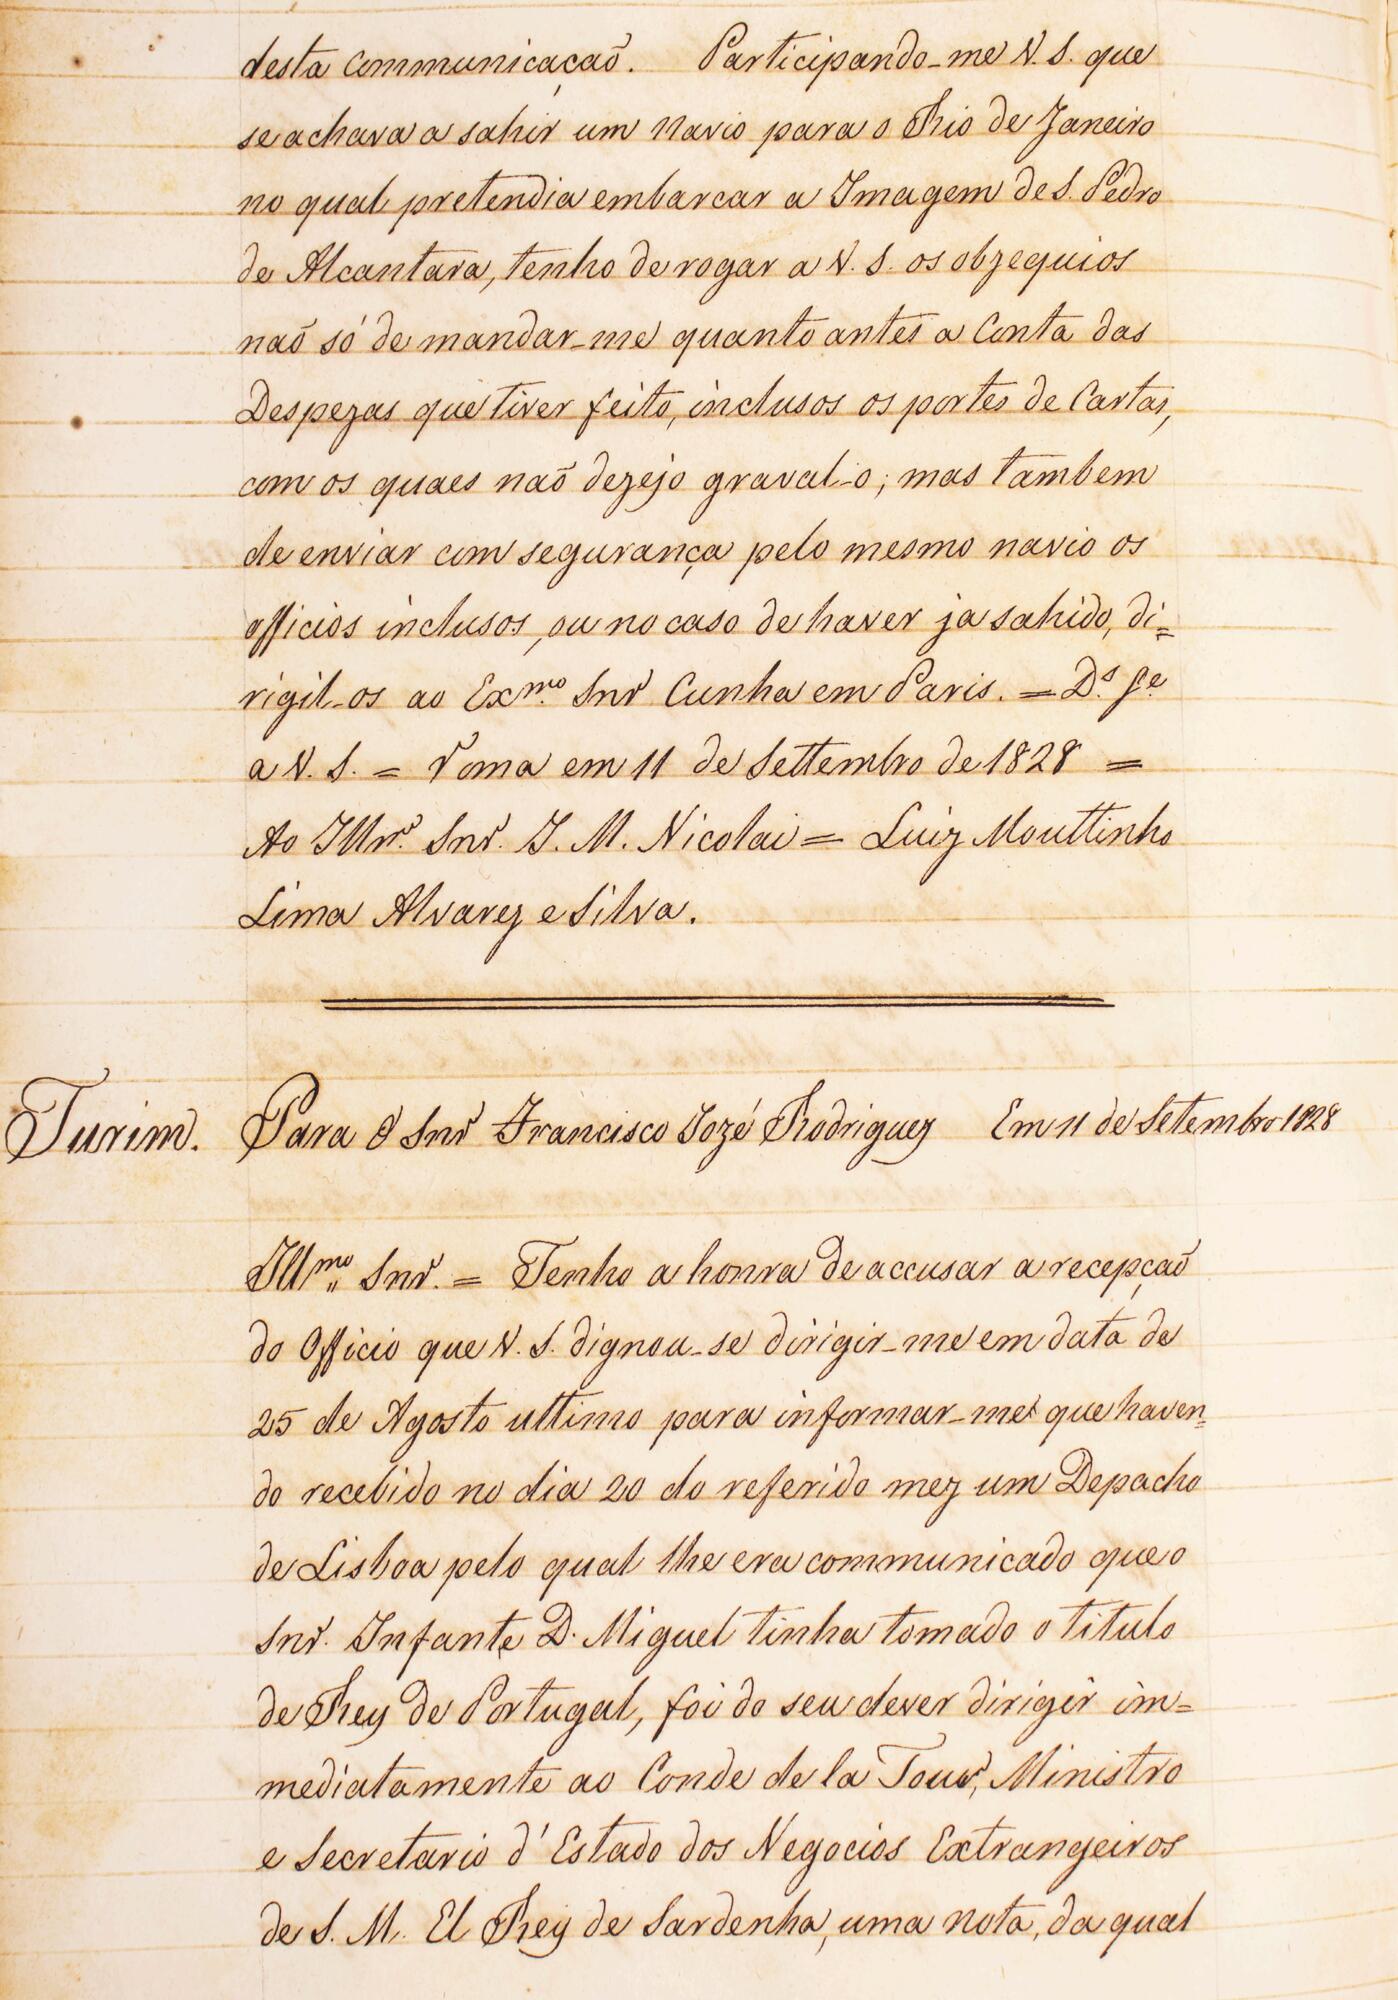 desta Communicaçaõ. Participando-me V. S. que
se achava a sahir um Navio para o Rio de Janeiro
no qual pretendia embarcar a Imagem de S. Pedro
de Alcantara, tenho de rogar a V. S. os obzequios
naõ só de mandar-me quanto antes a Conta das
Despezas que tiver feito, inclusos os portes de Cartas,
com os quaes naõ dezejo graval-o; mas tambem
de enviar com segurança pelo mesmo navio os
officios inclusos, ou no caso de haver ja sahido, di=
rigil-os ao Exmo. Snr Cunha em Paris. = Ds. Ge
a V. S. = Roma em 11 de Settembro de 1828 =
Ao Illmo. Snr. J. M. Nicolai = Luiz Mouttinho
Lima Alvarez e Silva.
Turim. Para O Snr Francisco Jozé Rodriguez Em 11 de Setembro 1828
Illmo. Snr. = Tenho a honra de accusar a recepçaõ
do Officio que V. S. dignou-se dirigir-me em data de
25 de Agosto ultimo para informar-me que haven=
do recebido no dia 20 do referido mez um Depacho
de Lisboa pelo qual lhe era communicado que o
Snr. Infante D. Miguel tinha tomado o titulo
de Rey de Portugal, foi do seu dever dirigir im=
mediatamente ao Conde de la Tour, Ministro
e Secretario d'Estado dos Negocios Extrangeiros
de S. M. El Rey de Sardenha, uma nota, da qual